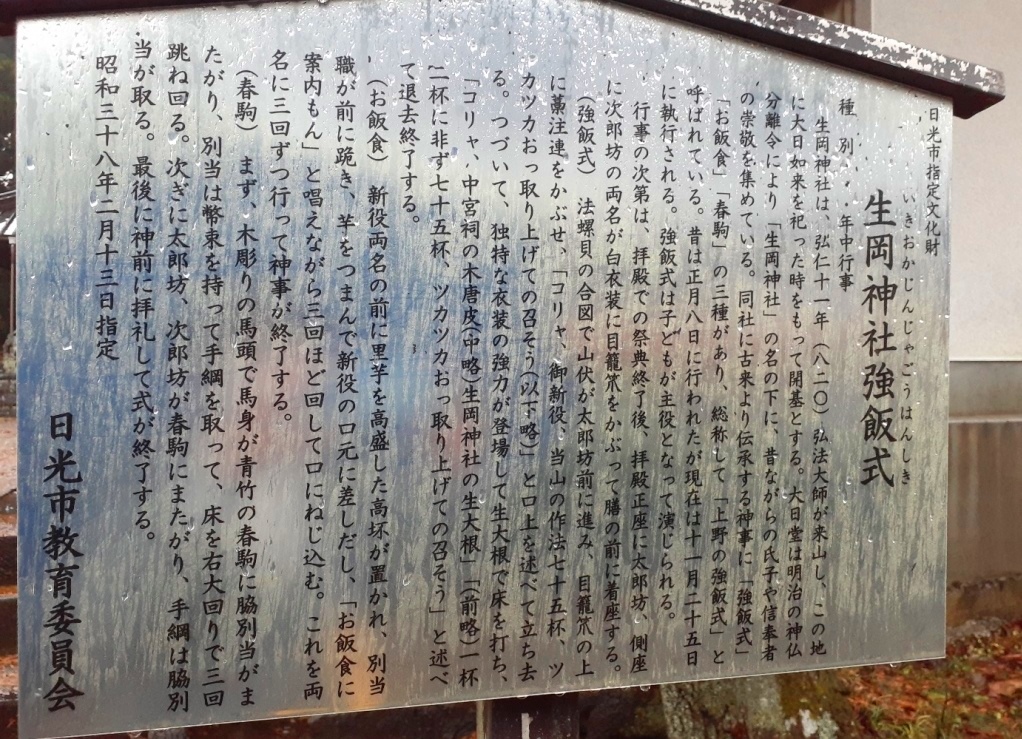 日光市指定文化財
いきおかじんじゃごうはんしき
生岡神社強飯式
種別・・年中行事
生岡神社は、弘仁十一年（八二〇）弘法大師が来山し、この地
に大日如来を祀った時をもって開基とする。大日堂は明治の神仏
分離令により「生岡神社」の名の下に、昔ながらの氏子や信奉者
の崇敬を集めている。同社に古来より伝承する神事に「強飯式」
「お飯食」「春駒」の三種があり、総称して「上野の強飯式」と
呼ばれている。昔は正月八日に行われたが現在は十一月二十五日
に執行される。強飯式は子どもが主役となって演じられる。
行事の次第は、拝殿での祭典終了後、拝殿正座に太郎坊、側座
に次郎坊の両名が白衣装に目籠笊をかぶって膳の前に着座する。
（強飯式）　法螺貝の合図で山伏が太郎坊前に進み、目籠笊の上
に藁注連をかぶせ、「コリャ、御新役、当山の作法七十五杯、ツ
カツカおっ取り上げての召そう（以下略）」と口上を述べて立ち去
る。つづいて、独特な衣装の強力が登場して生大根で床を打ち、
「コリャ、中宮祠の木唐皮（中略）生岡神社の生大根」「（前略）一杯
二杯に非ず七十五杯、ツカツカおっ取り上げての召そう」と述べ
て退去終了する。
（お飯食）　新役両名の前に里芋を高盛した高坏が置かれ、別当
職が前に跪き、芋をつまんで新役の口元に差しだし、「お飯食に
案内もん」と唱えながら三回ほど回して口にねじ込む。これを両
名に三回ずつ行って神事が終了する。
（春駒）　まず、木彫りの馬頭で馬身が青竹の春駒に脇別当がま
たがり、別当は幣束を持って手綱を取って、床を右大回りで三回
跳ね回る。次ぎに太郎坊、次郎坊が春駒にまたがり、手綱は脇別
当が取る。最後に神前に拝礼して式が終了する。
昭和三十八年二月十三日指定
日光市教育委員会